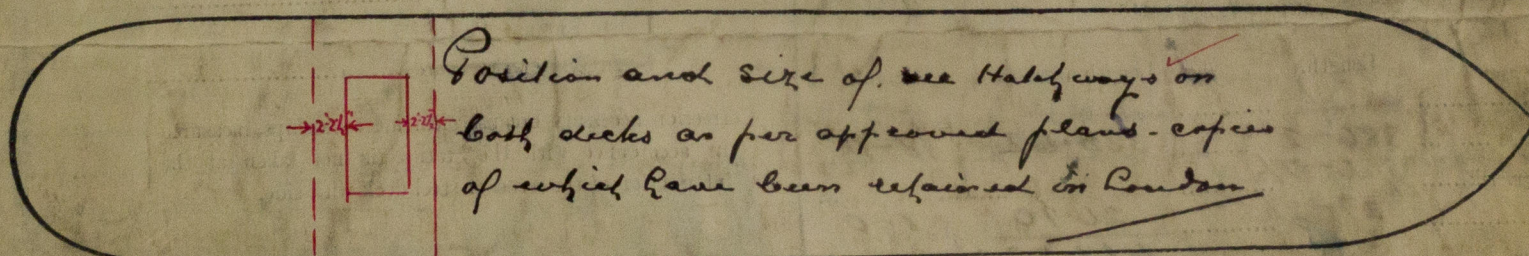 Position and size of all Hatchways on
2'-2½" 2'-2½" both decks as per approved plans - copies
of which have been retained in London